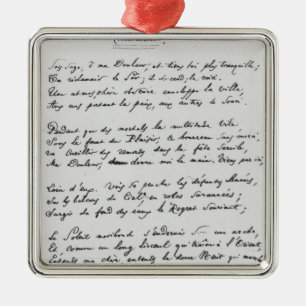 Sois Sage, ô ma Douleur, et tiens toi plus tranquille;
Tu réclamais le Soir; il descend; le voici:
Une atmosphère obscure enveloppe la ville,
Aux uns portant la paix, aux autres le Souci.
Pendant que des mortels la multitude vile
Sous le fouet du Plaisir, ce bourreau sans merci
Va cueillir des remords dans la fête servile,
Ma Douleur, donne moi la main. Viens par ici,
Loin d'eux. Vois se pencher les défuntes Années,
Sur les balcons du Ciel, en robes surannées;
Surgir du fond des eaux le Regret Souriant;
Le Soleil moribond s'endormir sous une arche,
Et comme un long linceul traînant à l'Orient,
Entends ma chère entends la douce Nuit qui